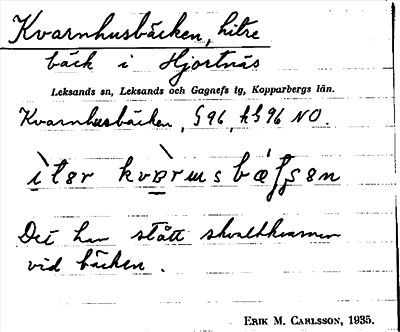 Kvarnhusbäcken, hitre
bäck i Hjortnäs
Leksands sn, Leksands och Gagnefs tg, Kopparbergs län.
Kvarnhusbäcken, § 96, NO.
Det har stått skvaltkvarnar
vid bäcken.
ERIK M. CARLSSON, 1935.